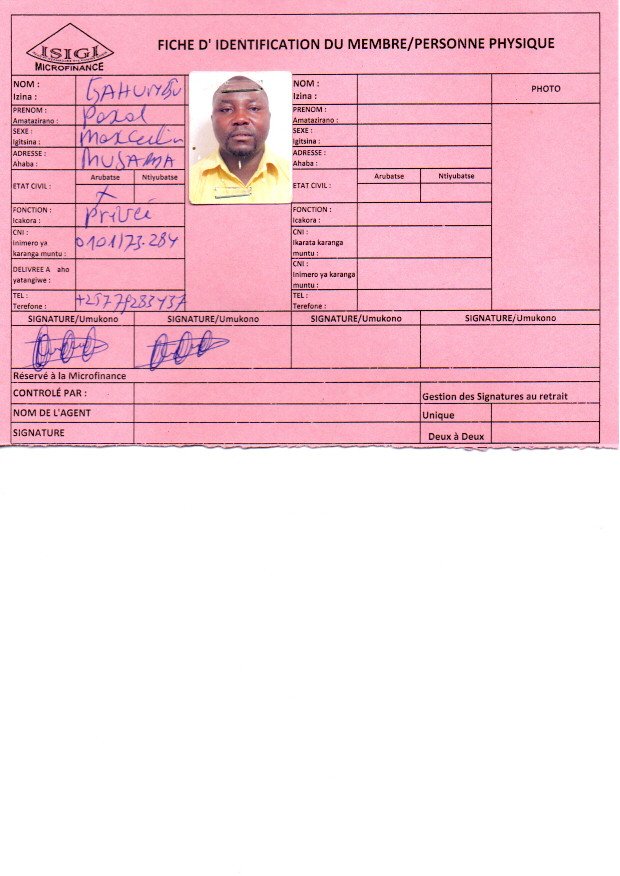 ISIGI
MICROFINANCE
FICHE D' IDENTIFICATION DU MEMBRE/PERSONNE PHYSIQUE
NOM :
Izina :
NOM :
Izina :
PHOTO
PRENOM :
Amatazirano :
PRENOM :
Amatazirano :
SEXE :
Igitsina :
SEXE :
Igitsina :
ADRESSE :
Ahaba :
MUSAMA
ADRESSE :
Ahaba :
ETAT CIVIL :
Arubatse
Ntiyubatse
X
ETAT CIVIL :
Arubatse
Ntiyubatse
FONCTION :
Icakora :
Privée
FONCTION :
Icakora :
CNI :
Inimero ya
karanga muntu :
0101/73.284
CNI :
Ikarata karanga
muntu :
DELIVREE A aho
yatangiwe :
CNI :
Inimero ya karanga
muntu :
TEL :
Terefone :
TEL :
Terefone :
SIGNATURE/Umukono
SIGNATURE/Umukono
SIGNATURE/Umukono
SIGNATURE/Umukono
Réservé à la Microfinance
CONTROLÉ PAR :
Gestion des Signatures au retrait
NOM DE L'AGENT
Unique
SIGNATURE
Deux à Deux